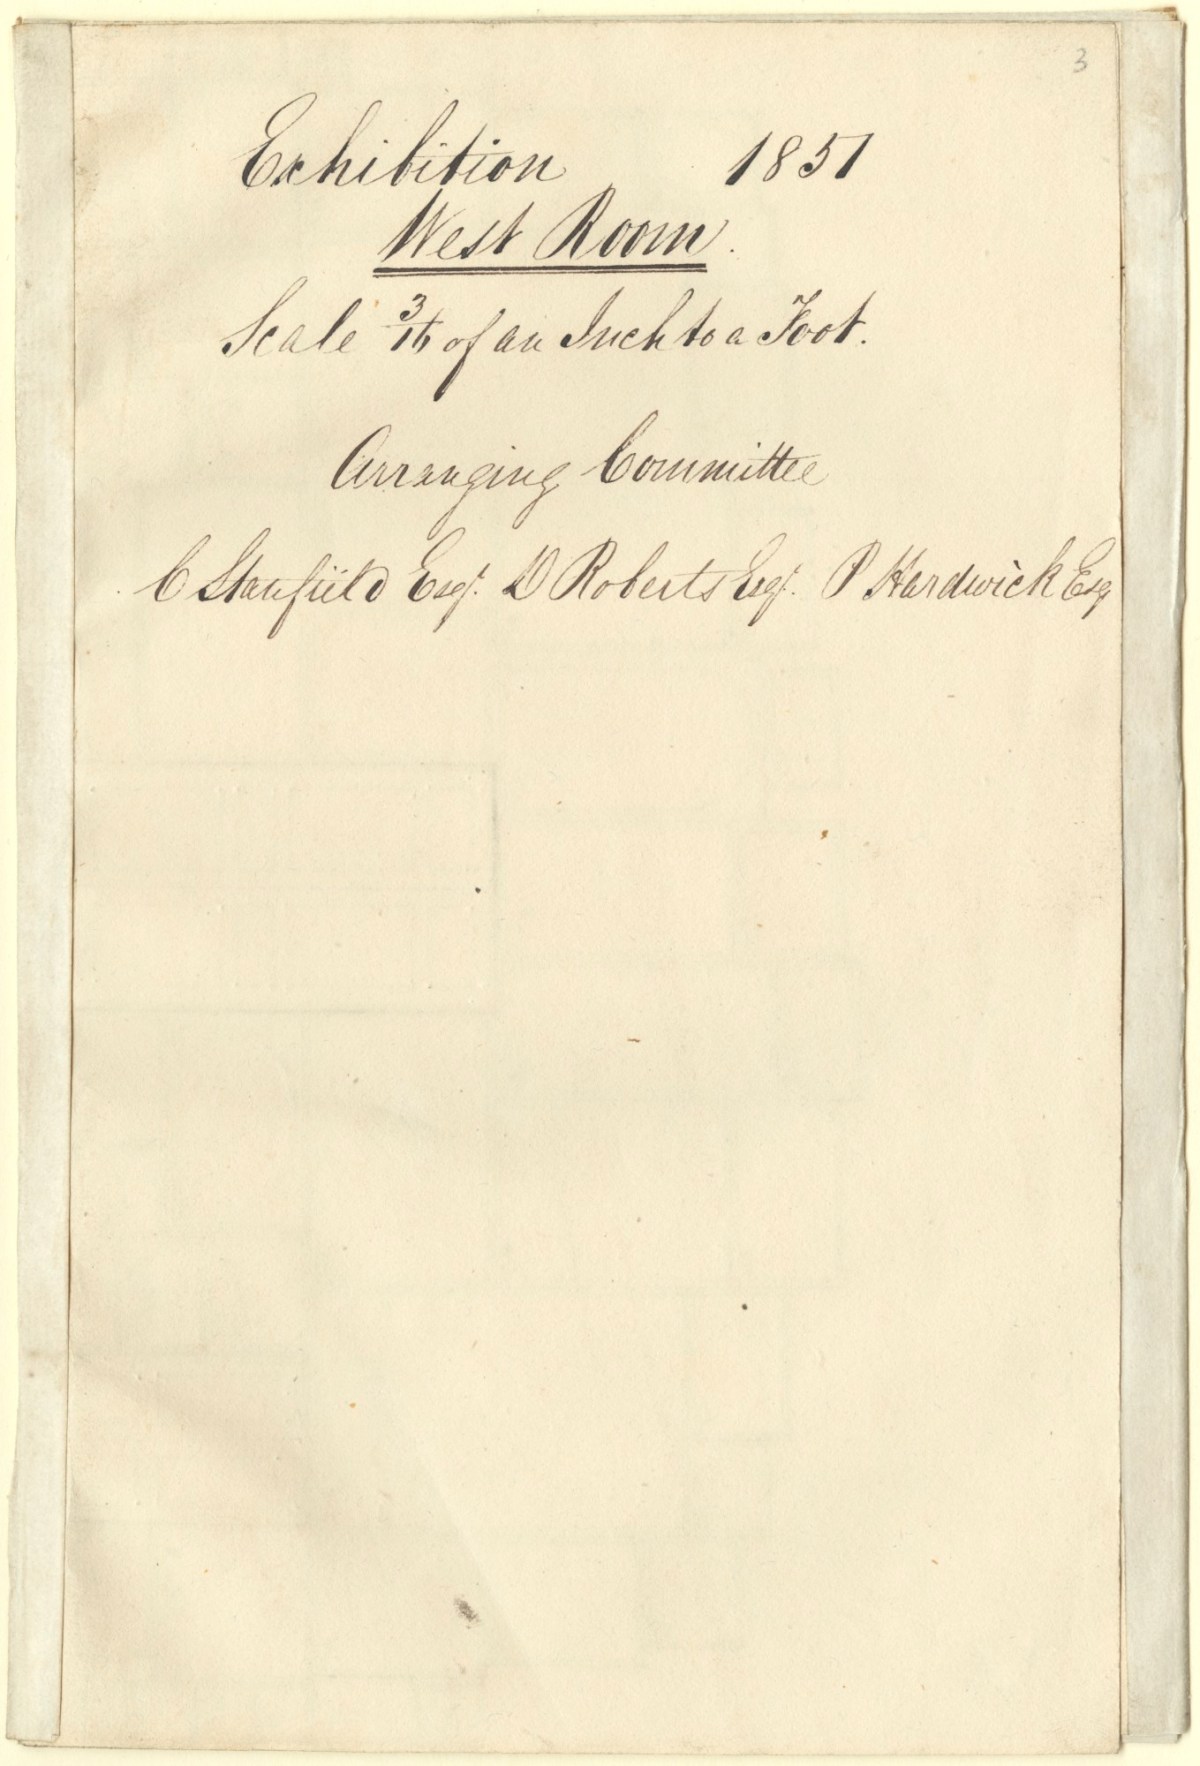 3
Exhibition 1851
West Room.
Scale 3/16 of an Inch to a Foot.
Arranging Committee
C Stanfield Esqr. D Roberts Esqr. P Hardwick Esq